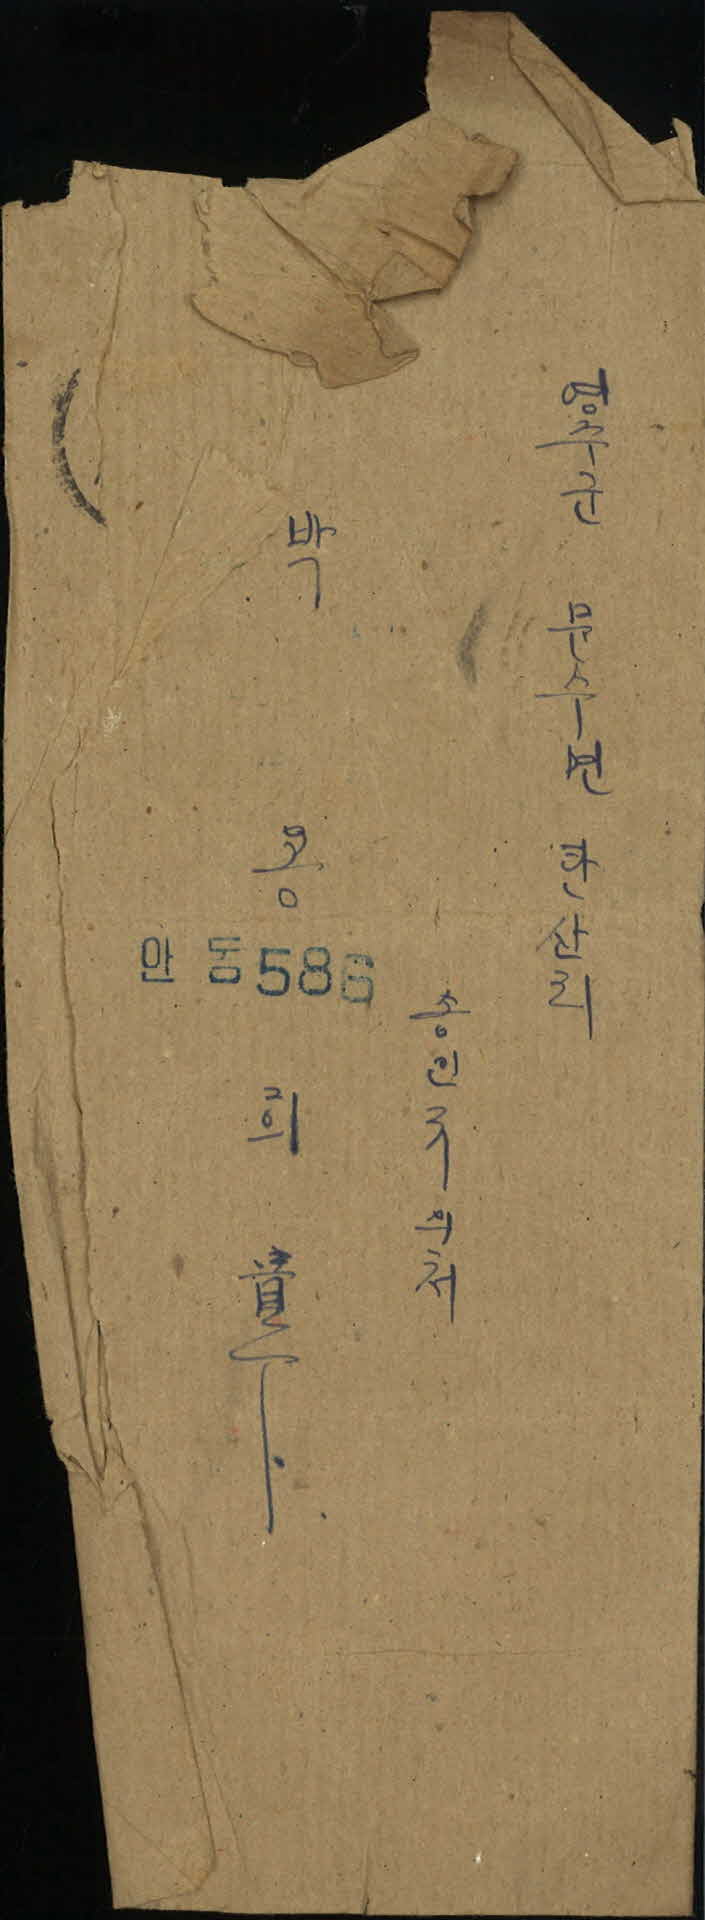 영주군 문수면 탄산리
송인주의처
박 용 희 貴下
안동586